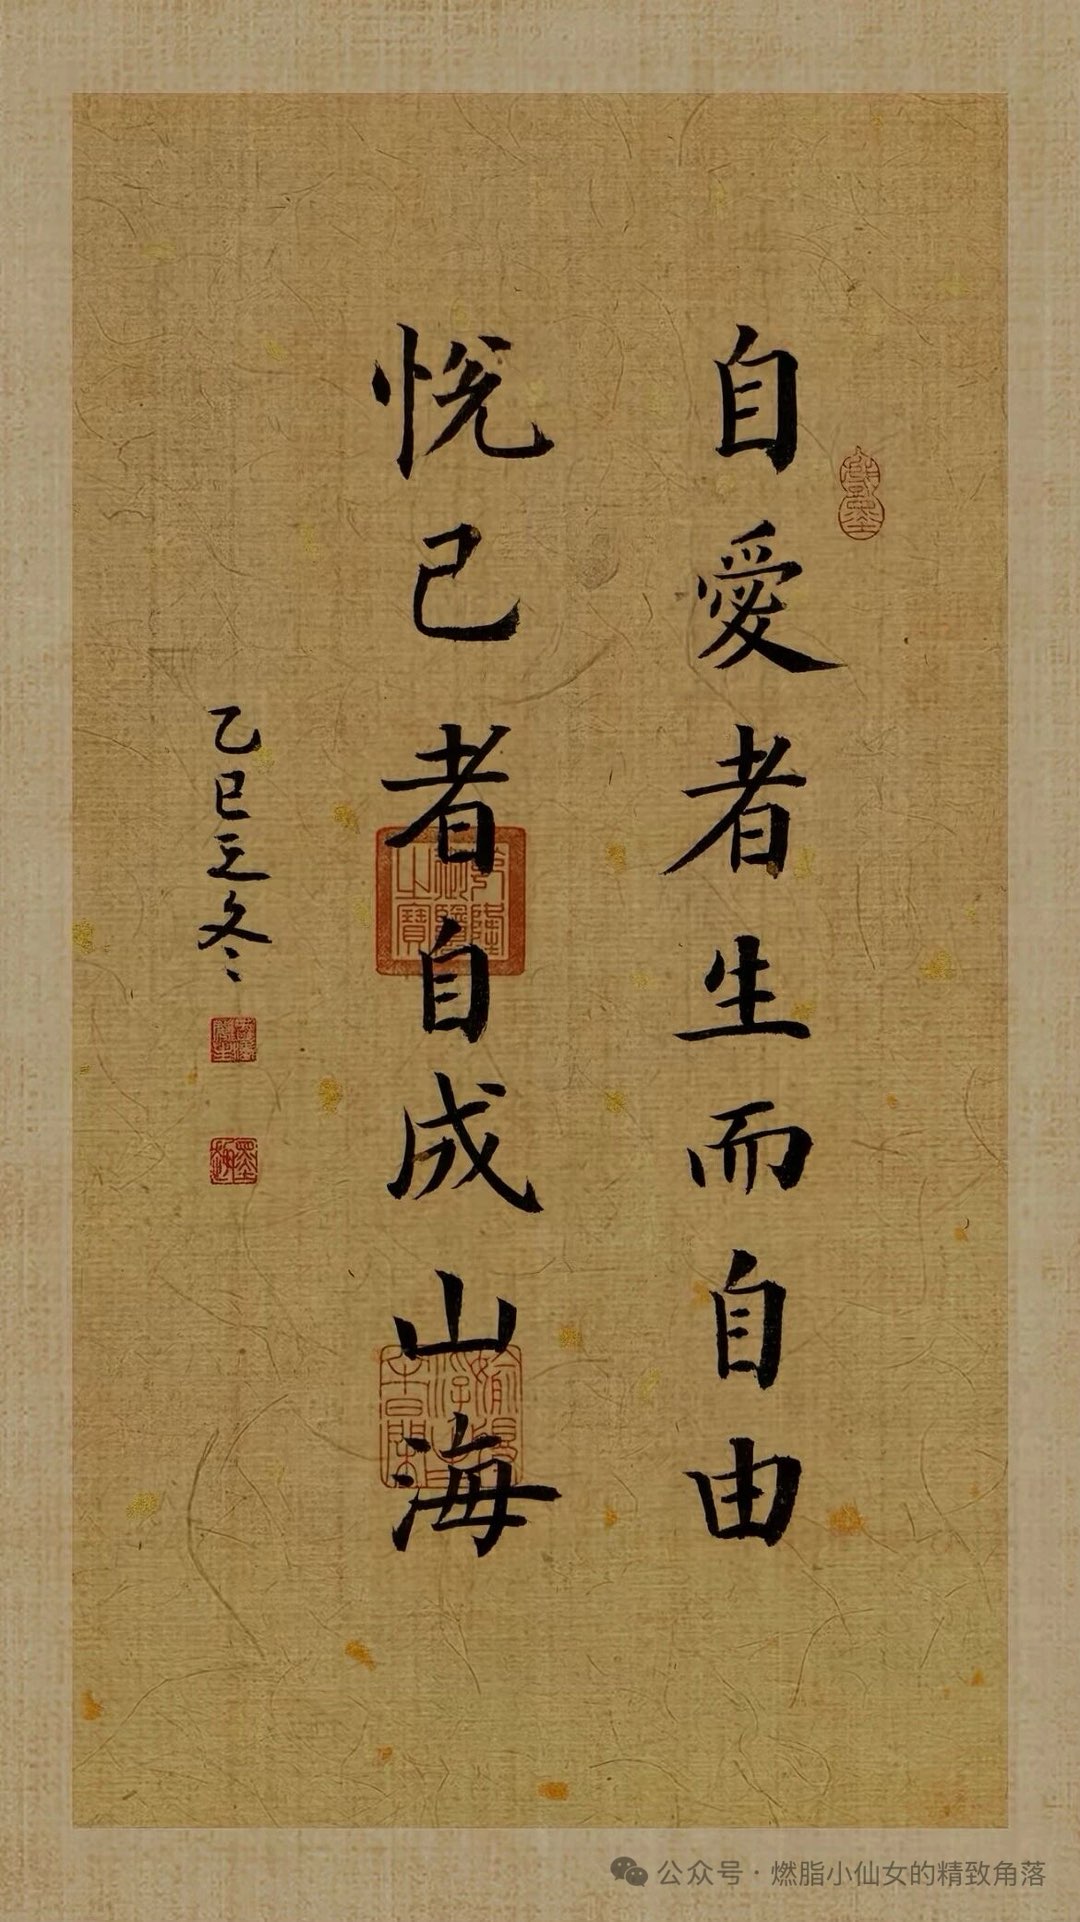 自愛者生而自由
悦己者自成山海
乙巳立冬
乾隆御覽之寶
公众号·燃脂小仙女的精致角落